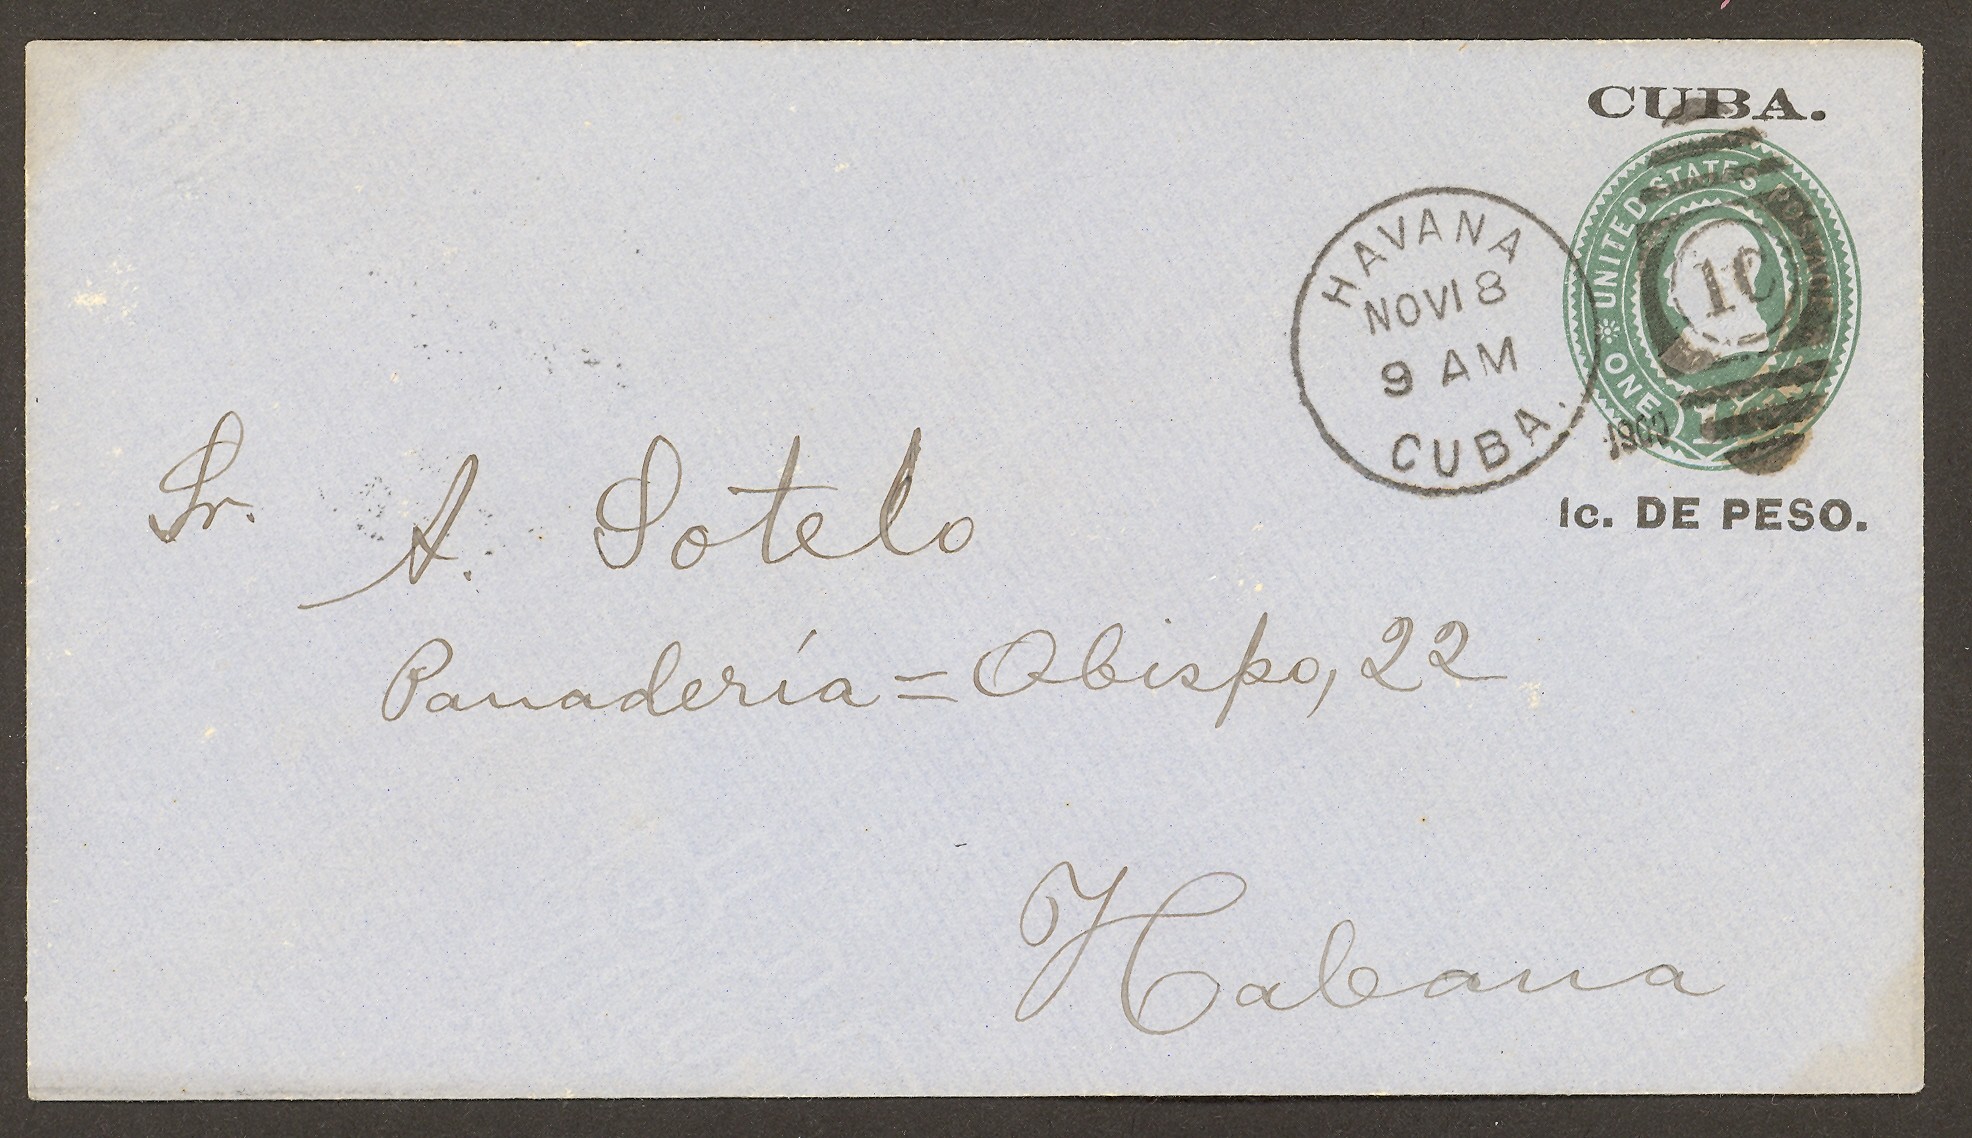 CUBA.
UNITED STATES POSTAGE
ONE 1 CENT
1c. DE PESO.
HAVANA
NOV 18
9 AM
CUBA.
1900
10
Sr. A. Sotelo
Panadería = Obispo, 22
Habana